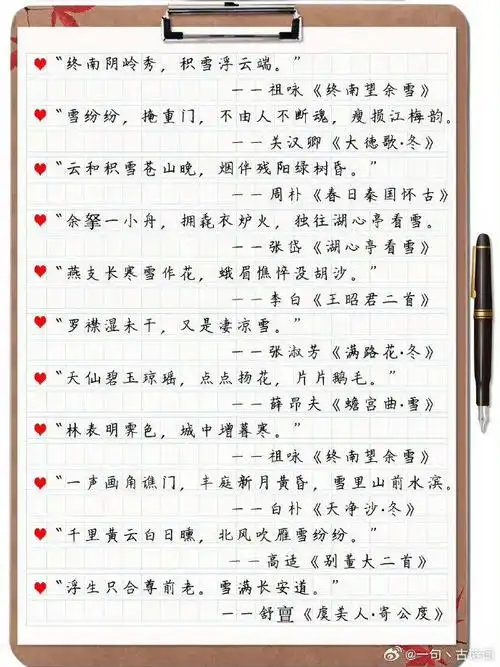 “终南阴岭秀，积雪浮云端。”
——祖咏《终南望余雪》
“雪纷纷，掩重门，不由人不断魂，瘦损江梅韵。
——关汉卿《大德歌·冬》
“云和积雪苍山晚，烟伴残阳绿树昏。”
——周朴《春日秦国怀古》
“余拏一小舟，拥毳衣炉火，独往湖心亭看雪。
——张岱《湖心亭看雪》
“燕支长寒雪作花，蛾眉憔悴没胡沙。”
——李白《王昭君二首》
“罗襟湿未干，又是凄凉雪。”
——张淑芳《满路花·冬》
“天仙碧玉琼瑶，点点扬花，片片鹅毛。”
——薛昂夫《蟾宫曲·雪》
“林表明霁色，城中增暮寒。”
——祖咏《终南望余雪》
“一声画角谯门，半庭新月黄昏，雪里山前水滨。
——白朴《天净沙·冬》
“千里黄云白日曛，北风吹雁雪纷纷。”
——高适《别董大二首》
“浮生只合尊前老。雪满长安道。”
——舒亶《虞美人·寄公度》
@一句丶古